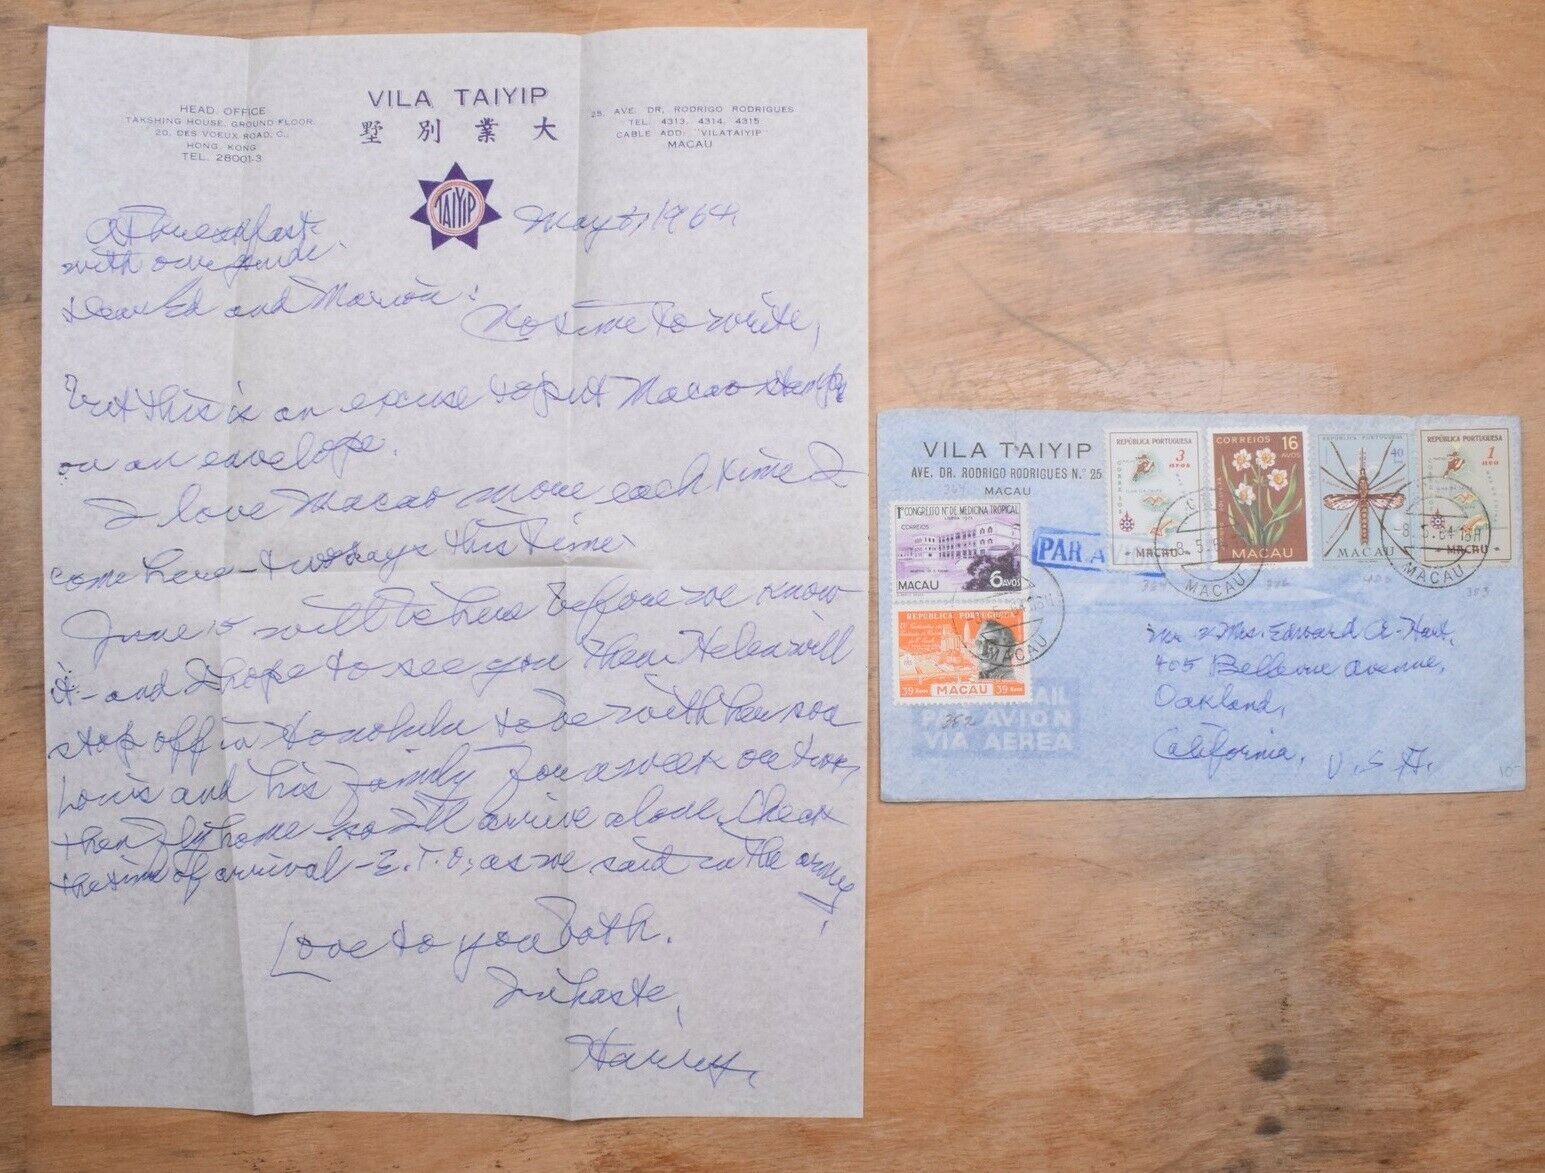 HEAD OFFICE
TAKSHING HOUSE, GROUND FLOOR
20, DES VOEUX ROAD, C.,
HONG KONG
TEL. 28001-3
VILA TAIYIP
墅 別 業 大
25, AVE. DR. RODRIGO RODRIGUES
TEL. 4313, 4314, 4315
CABLE ADD: "VILATAIYIP"
MACAU
TAIYIP
May 1964
At breakfast
with our guide.
Dear Ed and Marion:
No time to write,
but this is an excuse to put Macao stamps
on an envelope.
I love Macao more each time I
come here - two days this time.
June 15 will be here before we know
it - and I hope to see you then. Helen will
stop off in Honolulu to be with her son
Louis and his family for a week or two,
then fly home - so I'll arrive alone. Check
the time of arrival - E.T.O., as we said in the army!
Love to you both.
In haste,
Harry.
VILA TAIYIP
AVE. DR. RODRIGO RODRIGUES N.º 25
MACAU
1º CONGRESSO Nº DE MEDICINA TROPICAL
CORREIOS
MACAU 6 AVOS
39 Avos MACAU 39 Avos
PAR A
REPÚBLICA PORTUGUESA
3 avos
MACAU
CORREIOS 16 AVOS
MACAU
REPÚBLICA PORTUGUESA
40
MACAU
REPÚBLICA PORTUGUESA
1 avo
MACAU
8.5.64
MACAU
8.5.64 18H
MACAU
MACAU
352
383
PAR AVION
VIA AEREA
Mr & Mrs. Edward A. Hart,
405 Bellevue Avenue,
Oakland,
California, U.S.A.
10-